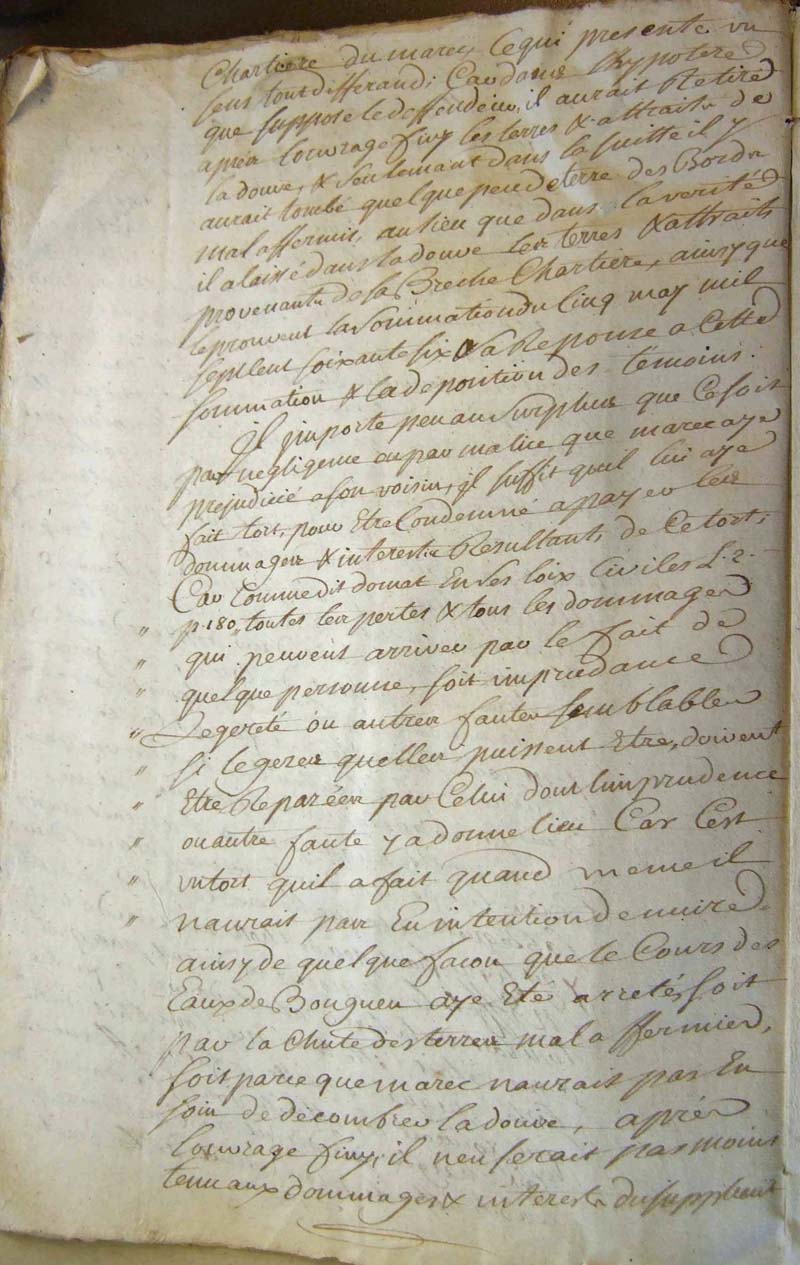 Chartiere du marec, Ce qui presente un
sens tout differand; Car dans Lhypotese
que suppose le deffendeur, il aurait Retiré
aprés l'ouvrage finy les terres & attraits de
la douve, & seulement dans la suitte il y
aurait tombé quelque peu de terre des Bords
mal affermis, au lieu que dans la verité
il a laissé dans la douve les terres & attraits
provenants de sa Breche Chartiere, ainsy que
le prouvent la Sommation du Cinq may mil
sept Cent soixante six, sa Reponse a Cette
sommation & la deposition des témoins.
Il jmporte peu au Surplus que Ce soit
par negligence ou par malice que marec aye
prejudicié a son voisin, jl suffit quil lui aye
fait tort, pour Etre Condemné a payer les
dommages & interests Resultants de Ce tort;
Car Comme dit domat En Ses loix Civiles L. 2.
" p. 180, toutes les pertes & tous les dommages
" qui peuvent arriver par le fait de
" quelque personne, soit imprudance
" Legereté ou autres fautes semblables
" si legeres quelles puissent Etre, doivent
" Etre Reparées par Celui dont l'imprudence
" ou autre faute y a donné lieu Car Cest
" un tort quil a fait quand meme il
" naurait pas Eu intention de nuire.
ainsy de quelque facon que le Cours des
Eaux de Bougueu aye Eté arretés, soit
par la Chute des terres mal affermies,
soit parce que marec naurait pas Eu
soin de decombrer la douve, aprés
l'ouvrage finy, il nen serait pas moins
tenu aux dommages & interests du suppliant